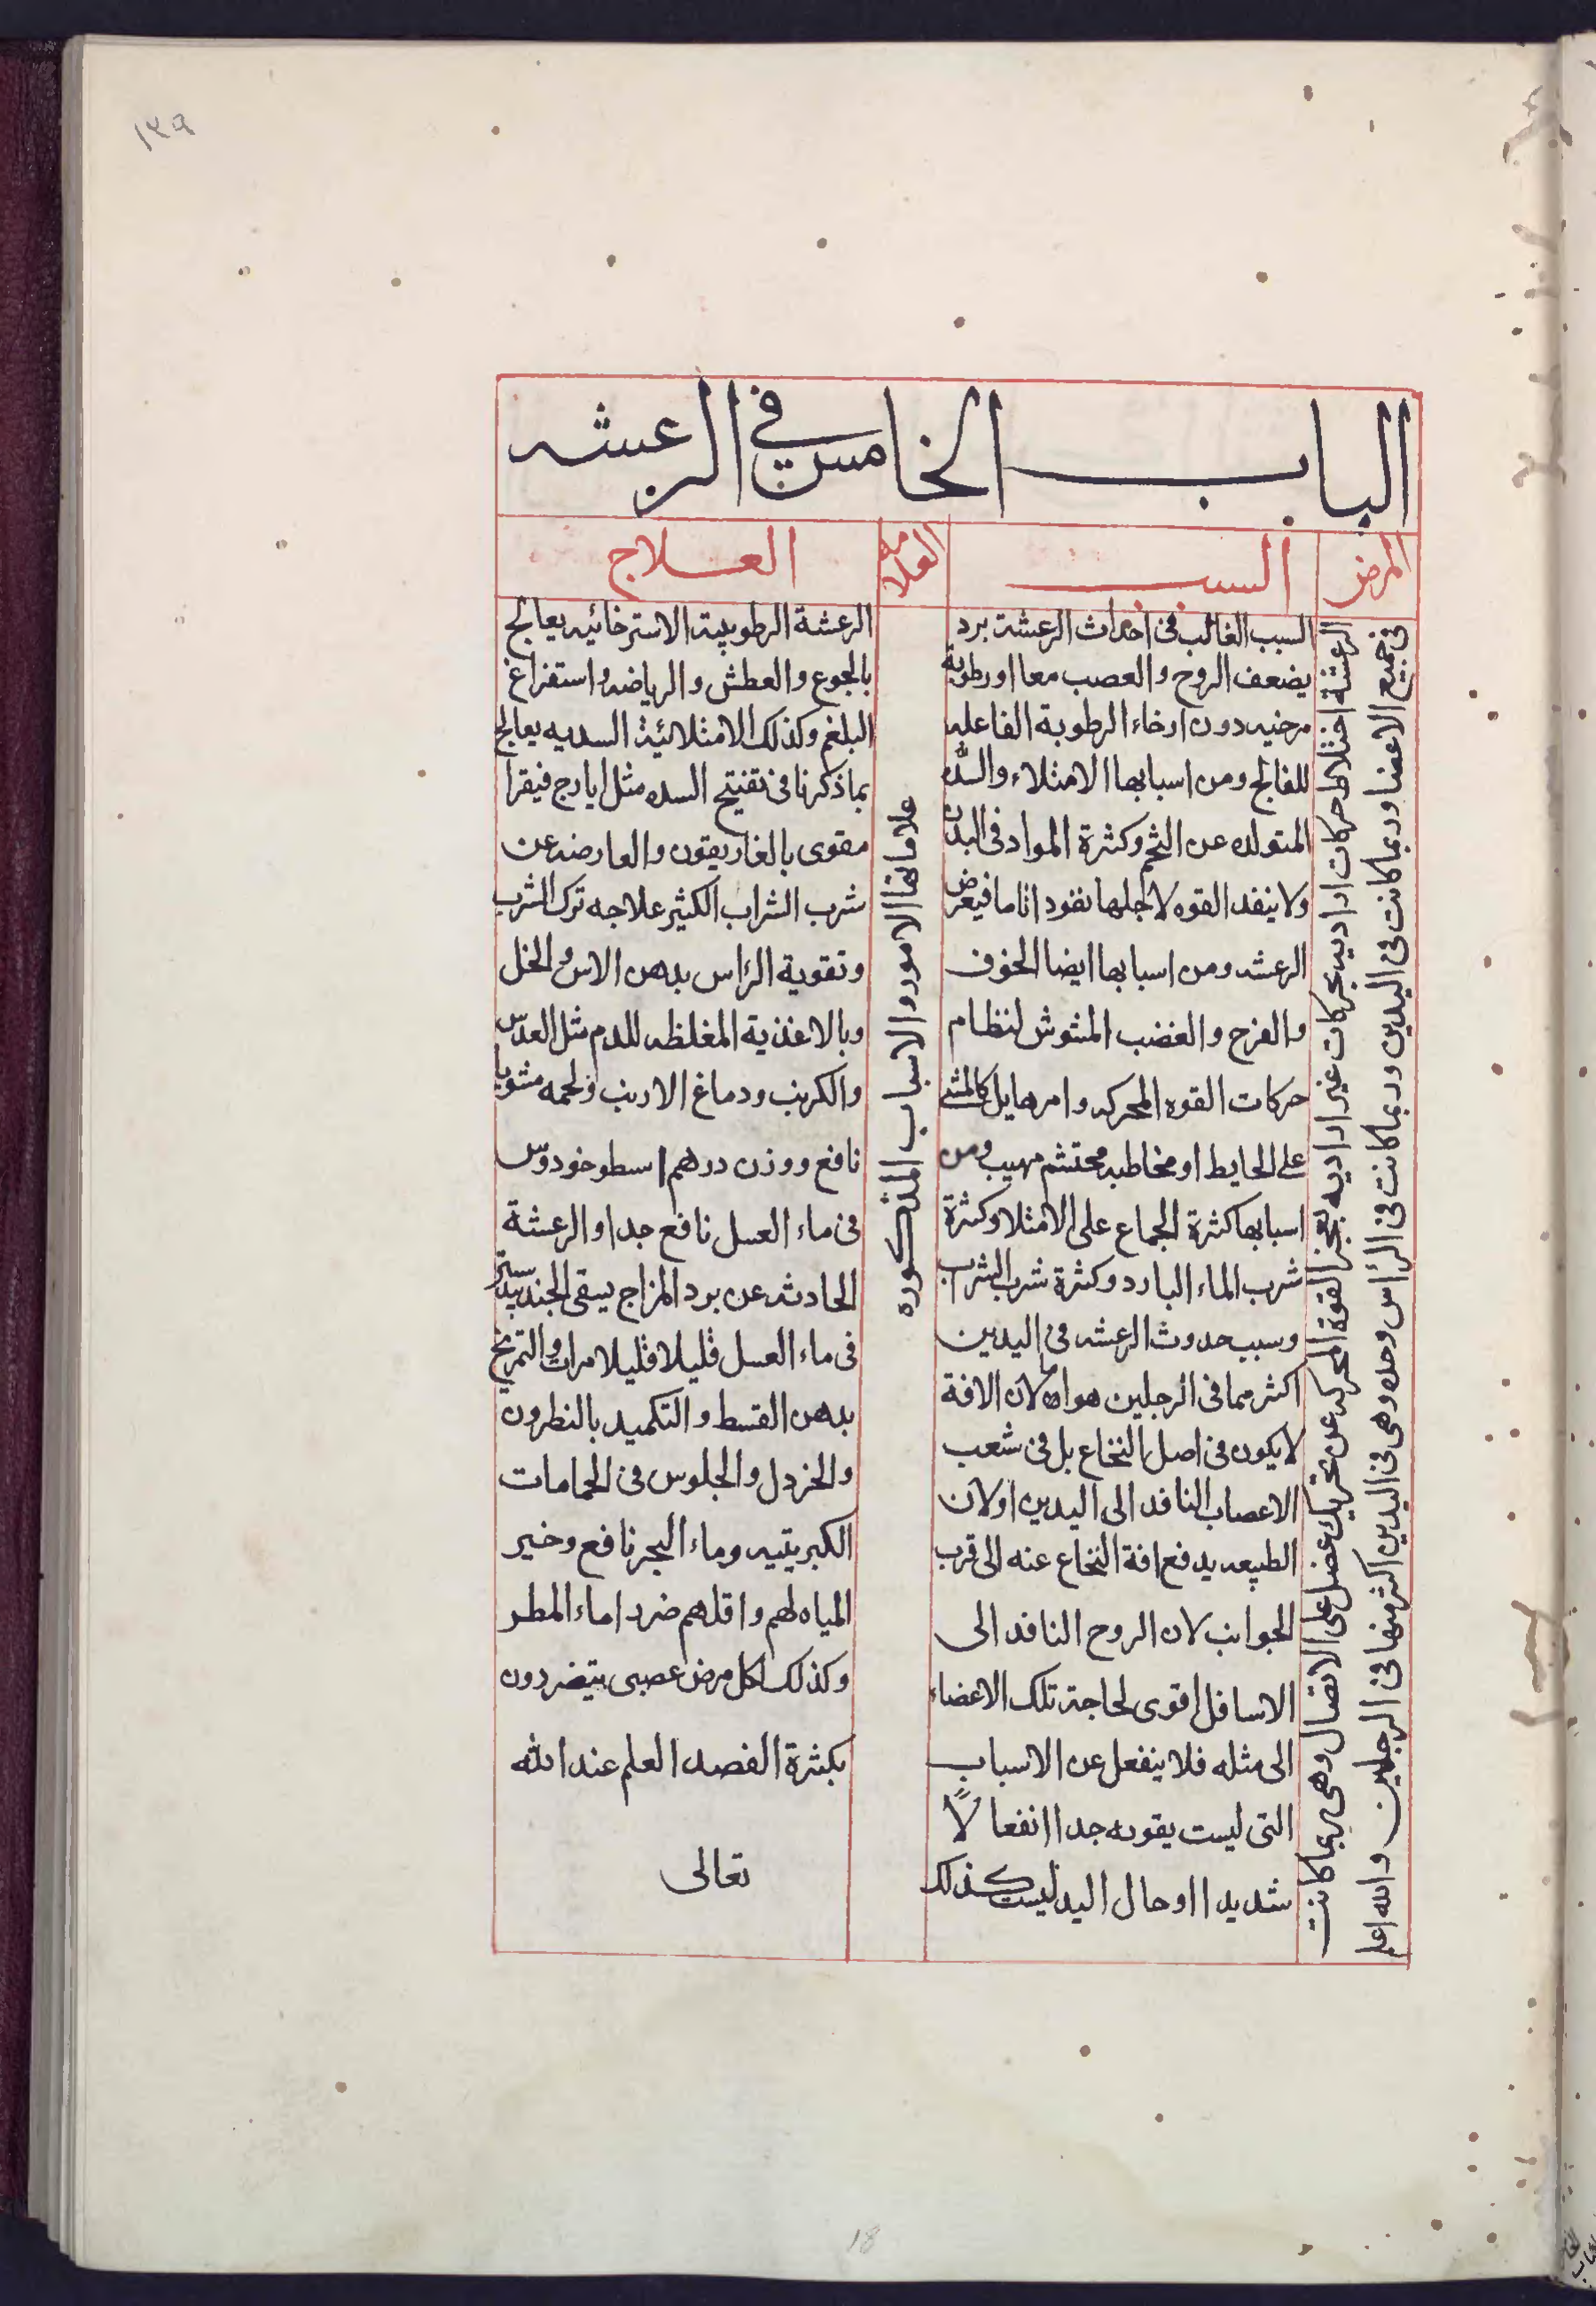 ١٣٩
الباب الخامس في الرعشه
المرض
السبب
العلامه
العلاج
الرعشة اختلاط حركات اراديه بحركات غير اراديه بعجز القوة المحركه عن تحريك عضل على الاتصال وهى ربما كانت
فى جميع الاعضا وربما كانت فى اليدين وربما كانت فى الراس وحده وهى فى اليدين اكثر منها فى الرجلين والله اعلم
السبب الغالب فى احداث الرعشة برد
يضعف الروح والعصب معا او رطوبة
مرخيه دون ارخاء الرطوبة الفاعله
للفالج ومن اسبابها الامتلاء والسده
المتولده عن التخم وكثرة المواد فى البدن
ولا ينفد القوه لاجلها نفودا تاما فيعرض
الرعشه ومن اسبابها ايضا الخوف
والفزع والغضب المشوش لنظام
حركات القوه المحركه وامر هايل كالمشى
على الحايط او مخاطبه محتشم مهيب ومن
اسبابها كثرة الجماع على الامتلا وكثرة
شرب الماء البارد وكثرة شرب الشراب
وسبب حدوث الرعشه فى اليدين
اكثر مما فى الرجلين هو اما لان الافة
لا يكون فى اصل النخاع بل فى شعب
الاعصاب النافد الى اليدين او لان
الطبيعه يدفع افة النخاع عنه الى قرب
الجوانب لان الروح النافد الى
الاسافل اقوى لحاجة تلك الاعضاء
الى مثله فلا ينفعل عن الاسباب
التى ليست بقويه جدا انفعالًا
شديدا او حال اليد ليست كذلك
علاماتها الامور والاسباب المذكوره
الرعشة الرطوبية الاسترخائيه يعالج
بالجوع والعطش والرياضه واستفراغ
البلغم وكذلك الامتلائية السدديه يعالج
بما ذكرنا فى تفتيح السده مثل ايارج فيقرا
مقوى بالغاريقون والعارضه عن
شرب الشراب الكثير علاجه ترك الشرب
وتقوية الراس بدهن الاس والخل
وبالاغذية المغلظه للدم مثل العدس
والكرنب ودماغ الارنب ولحمه مشويا
نافع ووزن درهم اسطوخودوس
فى ماء العسل نافع جدا والرعشة
الحادثه عن برد المزاج يسقى الجندبيدستر
فى ماء العسل قليلا قليلا مرات والتمريخ
بدهن القسط والتكميد بالنطرون
والخردل والجلوس فى الحمامات
الكبريتيه وماء البحر نافع وخير
المياه لهم واقلهم ضررا ماء المطر
وكذلك لكل مرض عصبى يتضررون
بكثرة الفصد العلم عند الله
تعالى
18